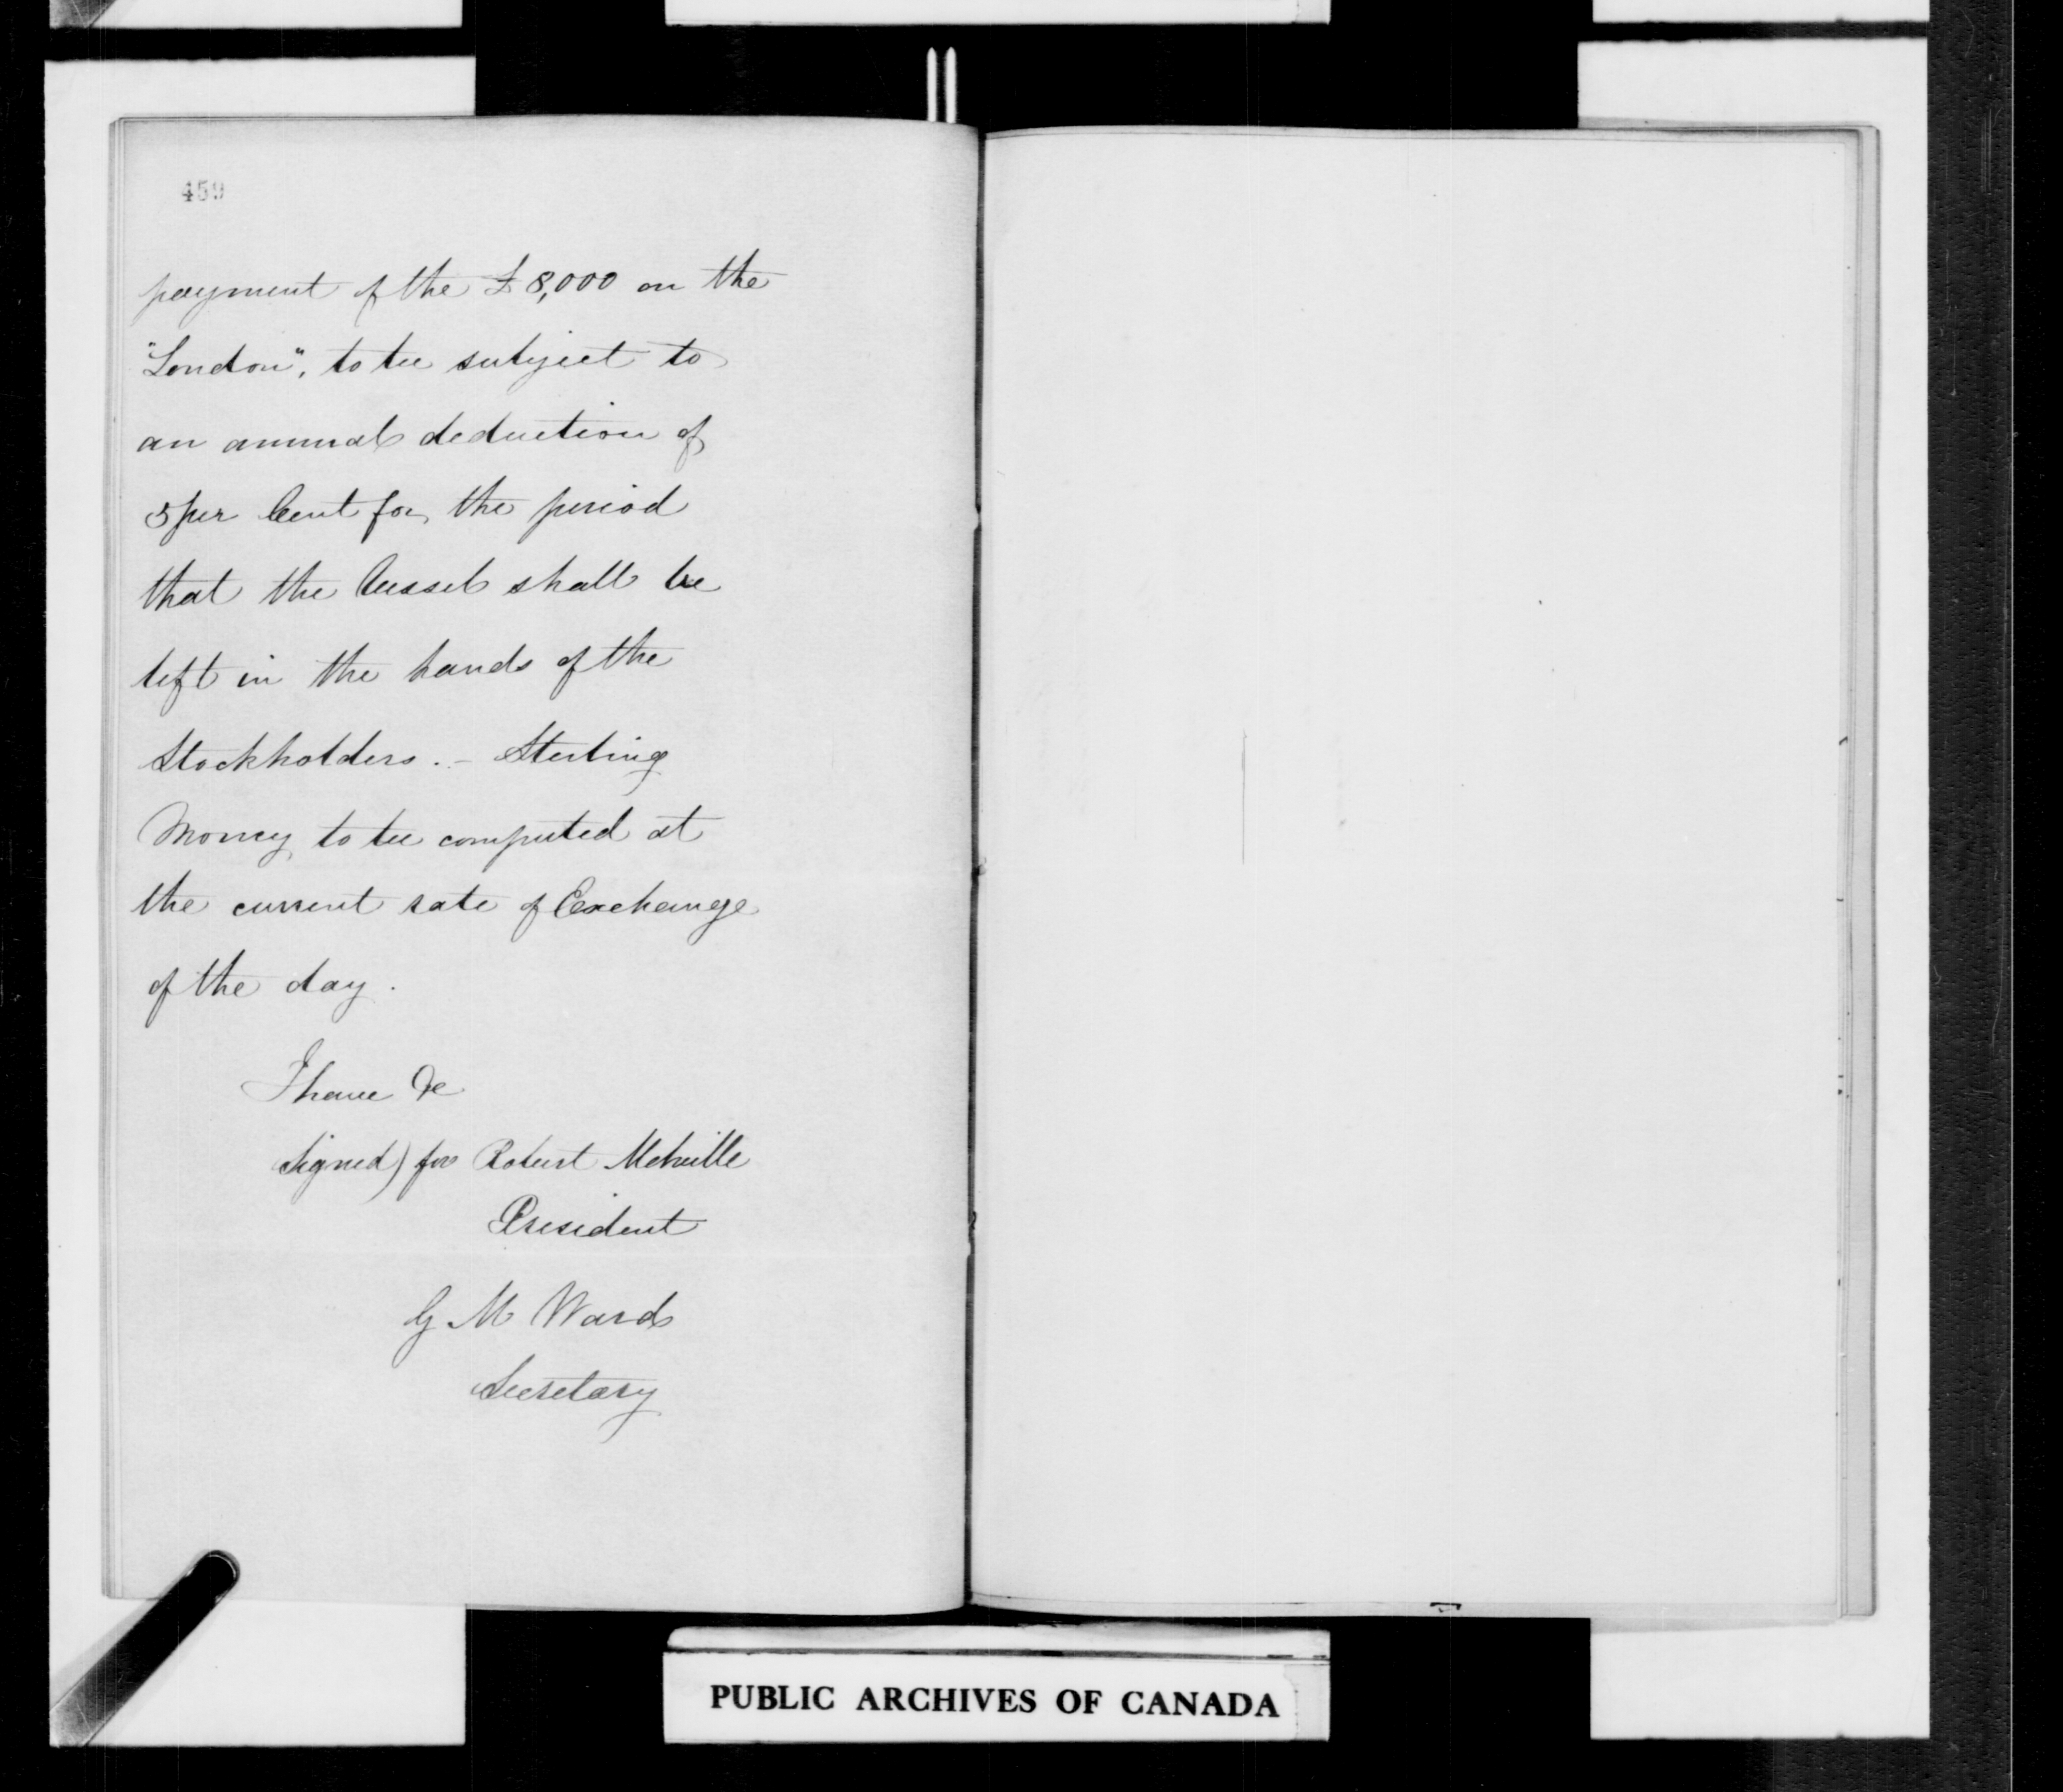 459
payment of the £8,000 on the
"London", to be subject to
an annual deduction of
5 per Cent for the period
that the Vessel shall be
left in the hands of the
Stockholders. - Sterling
Money to be computed at
the current rate of Exchange
of the day.
I have &c
Signed) for Robert Melville
President
G M Ward
Secretary
PUBLIC ARCHIVES OF CANADA